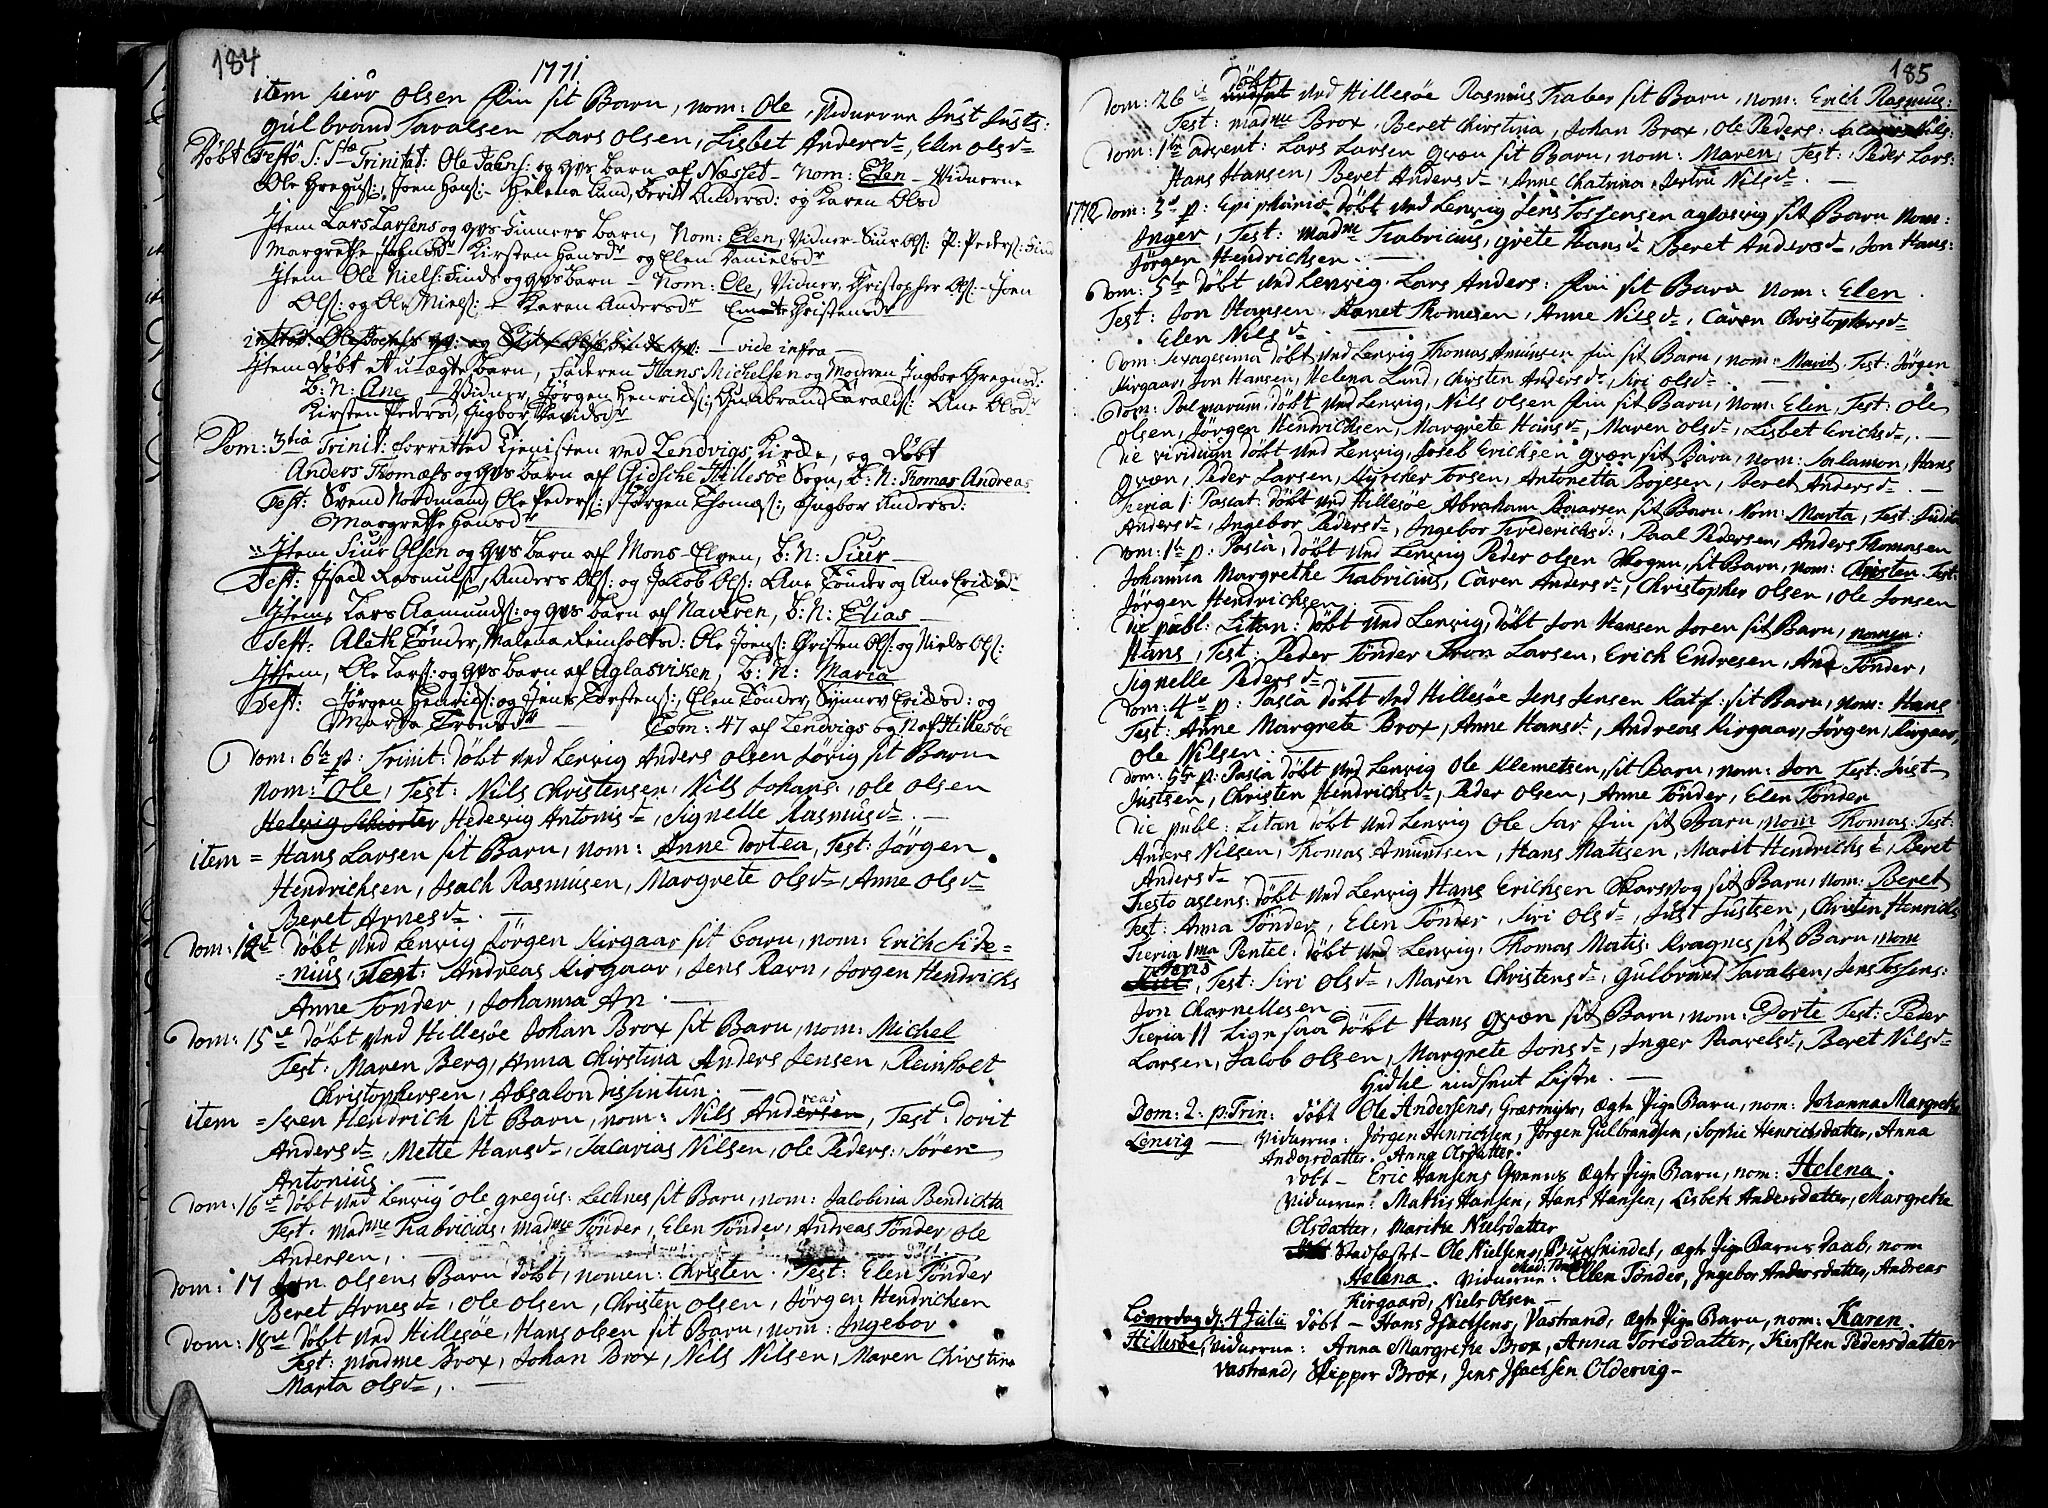 184
1771
item siur Olsen Fin sit Barn, nom: Ole, Vidnerne Just Justs:
Gulbrand Tavalsen, Lars Olsen, Lisbet Andersd, Elen Olsd
Døbt Festo S: Stæ Trinitat: Ole Jacobs: og hvs barn af Næsset - Nom: Elen - Vidnerne
Ole Gregus:, Joen Hans: - Helena Lund, Berit Andersd: og Karen Olsd
Item Lars Larsens og hvs Finners barn, Nom: Elen, Vidner - Siur Ols: P: Peders: Find
Margrethe Johnsdr Kirsten Hansdr og Elen Danielsdr
Item Ole Niels: Finds og hvs barn - Nom: Ole, Vidner, Christopher Ols: - Joen
Ols: og Ole Niels: - Karen Andersdr Christensdr
introd: vide infra
Item Døbt et u-ægte barn, Faderen Hans Michelsen og Moderen Ingbor Gregusd:
B: N: Ane - Vidner, Jørgen Henrichs:, Gulbrand Tarals: Ane Olsdr
Kirsten Pedersd, Ingbor Davidsdr
Dom: 3tia Trinit: forretted Tienisten ved Lendvigs Kirke, og Døbt
Anders Thomæs: og hvs barn af Gidsche Hillesøe Sogn, B: N: Thomas Andreas
Test: Svend Nordmand, Ole Peders:, Jørgen Thomæs:, Ingbor Andersd:
Margrethe Hansdr
Item Siur Olsen og hvs barn af Mons-Elven, B: N: Siur
Test: Isach Rasmus:, Anders Ols: og Jacob Ols: Ane Tønder og Ane Erichsd
Item, Lars Aamunds: og hvs barn af Naveren, B: N: Elias
Test: Aleth Tønder, Malena Reinholtsd: Ole Joens: Christen Ols: og Niels Ols:
Item, Ole Lars: og hvs barn af Aglasviken, B: N: Maria
Test: Jørgen Henrichs: og Jens Torstens:, Elen Tønder, Synnev Erichsd: og
Marta Tronsdr Com: 47 af Lendvigs og N af Hillesøe
Dom: 6te p: Trinit: døbt ved Lenvig Anders Olsen Sørig sit Barn
Nom: Ole, Test: Nils Christensen, Nils Johans:, Ole Olsen
Helvig Schorter Hedevig Antonisd, Signelle Rasmusd.
item = Hans Larsen sit Barn, nom: Anne Dortea, Test: Jørgen
Hendrichsen, Isach Rasmusen, Margrete Olsd, Anne Olsd
Beret Arnesd.
Dom: 12te døbt ved Lenvig Jörgen Kirgaar sit barn, nom: Erich Side=
=nius, Test: Andreas Kirgaar, Jens Ravn, Jorgen Hendrichs
Anne Tonder, Johanna An.
Dom: 15de døbt ved Hillesøe Johan Brox sit Barn, nom: Michel
Test: Maren Berg, Anna Chirstina Anders Jensen, Reinholt
Christophersen, Absalon dissentün.
item = Hendrich sit Barn, nom: Nils Andersen reas, Test: Dorit
Andersd, Mette Hansd, Sacarias Nilsen, Ole Peders:, Sören
Antonius.
Dom: 16de døbt ved Lenvig Ole Gregus: Lechnes sit Barn, nom: Jacobina Bendichta
Test: Madme Fabricius, madme Tønder, Elen Tønder, Andreas Tønder, Ole
Andersen,
Dom: 17 Olsens Barn døbt, nomen: Christen. Test: Elen Tønder
Beret Arnesd, Ole Olsen, Christen Olsen, Jørgen Hendrichsen
Dom: 18de døbt ved Hillesøe, Hans Olsen sit Barn, nom: Ingebor
Test: Madme Brox, Johan Brox, Nils Nilsen, Maren Chirstina
Marta Olsd,
185
Dom: 26de døbt ved Hillesøe Rasmus Faber sit Barn, nom: Erich Rasmus:
Test: madme Brox, Beret Chirstina, Johan Brox, Ole Peders:
Dom: 1te advent: Lars Larsen græn sit Barn, nom: Maren, Test: Peder Lars:
Hans Hansen, Beret Andersd, Anne Chatrina, Sertru Nilsd.
1772 Dom: 3de p: Epiphaniæ døbt ved Lenvig Jens Tossensen aglasvig sit Barn Nom:
Inger, Test: Madme Fabricius, grete Hansd, Beret Andersd, Jon Hans:
Jörgen Hendrichsen.
Dom: 5te døbt ved Lenvig Lars Anders: Fin sit Barn nom: Elen
Test: Jon Hansen Thomesen, Anne Nilsd, Caren Christophersd
Elen Nilsd
Dom: Sexagesima døbt ved Lenvig Thomas Amunsen fin sit Barn, nom: Marit, Test: Jörgen
Kirgaar, Jon Hansen, Helena Lund, Chirsten Andersd, Siri Olsd.
Dom: Palmarum, døbt ved Lenvig, Nils Olsen Fin sit Barn, Nom: Elen, Test: Ole
Olsen, Jörgen Hendrichsen, Margrete Hansd, Maren Olsd, Lisbet Erichsd.
Die viridium døbt ved Lenvig, Joseb Erichsen græn sit Barn, nom: Salamon, Hans
græn, Peder Larsen, Torsen, Antonetta Bojesen, Beret Andersd.
Feria 1 Pascat: døbt ved Hillesøe Abraham sit Barn, Nom: Marta, Test: Judita
Andersd, Ingebor Pedersd, Ingebor Frederichsd: Paal Pedersen, Anders Thomasen
Dom: 1te p: Pascâ, døbt ved Lenvig Peder Olsen sit Barn, nom: Chirsten. Test:
Johanna Margrethe Fabricius, Caren Andersd, Christopher Olsen, Ole Jonsen
Jörgen Hendrichsen
Die publ: Litan: døbt ved Lenvig, døbt Jon Hansen Joren sit Barn, nomen:
Hans, Test: Peder Tønder Tron Larsen, Erich Endresen, Ane Tønder,
Signelle Pedersd.
Dom: 4de p: Pascâ døbt ved Hillesøe Jens Jensen Katf: sit Barn, nom: Hans
Test: Anne Margrete Brox, Anne Hansd, Andreas Kirgaar, Jörgen Kirgaar,
Ole Nilsen.
Dom: 5te p: Pascâ døbt ved Lenvig Ole Klemetsen, sit Barn, nom: Jon Test: Just
Justsen, Christen Hendrichsd, Peder Olsen, Anne Tønder, Elen Tønder
Die publ: Litan døbt ved Lenvig Ole Sar Fin sit Barn, nom Thomas: Test:
Anders Nilsen, Thomas Amundsen, Hans Matisen, Marit Hendrichsd, Beret
Andersd.
Festo ascens: døbt ved Lenvig Hans Erichsen sit Barn, nom: Beret
Test: Anna Tønder, Elen Tønder, Siri Olsd, Just Justsen, Christen Henrichs
Feria 1ma Pentec: døbt ved Lenvig, Thomas Matis: Kragnes sit Barn, nom
Jens, Test: Siri Olsd, Maren Christensd, Gulbrand Tavalsen, Jens Tossens:
Jon Charnellesen.
Feria 11 Ligesaa døbt Hans græn sit Barn, nom: Dorte Test: Peder
Larsen, Jacob Olsen, Margrete Jonsd, Inger Paavelsd, Beret Nilsd
Hidtil indsent Liste.
Dom: 2: p: Trin: døbt Ole Andersens, Græsmyhr, ægte Pige Barn, nom: Johanna Margrethe
Lenvig - Vidnerne: Jørgen Henrichsen, Jørgen Gulbrandsen, Sophie Henrichsdatter, Anna
Andersdatter. Anna Olsdatter.
døbt - Eric Hansens Grennes ægte Pige Barn, nom: Helena.
Vidnerne: Mathis Hansen, Hans Hansen, Lisbeth Andersdatter, Margrethe
Olsdatter, Marithe Nielsdatter
Stadfæstet - Ole Nielsens, ægte Pige Barns daab, nom
Helena. Vidnerne: Ellen Tönder, Ingebor Andersdatter, Andreas
Kirgaard, Niels Olsen -
Løverdag d: 4 Julii døbt - Hans Isachsens, Vastrand, ægte Pige Barn, nom: Karen.
Hillesøe, Vidnerne: Anna Margrethe Brox, Anna Torisdatter, Kirsten Pedersdatter
Vastrand, Skipper Brox, Jens Isachsen Oldervig -